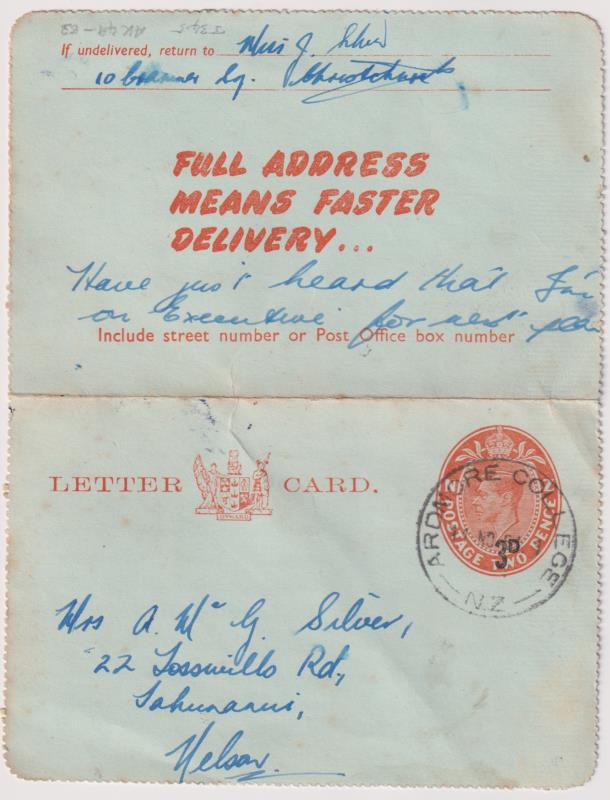 AK49-63 J345
If undelivered, return to Miss J. Silver
10 Cranmer Sq. Christchurch
FULL ADDRESS
MEANS FASTER
DELIVERY...
Have just heard that I'm
on Executive for next year
Include street number or Post Office box number
LETTER CARD.
ONWARD
POSTAGE TWO PENCE
3D
ARDMORE COLLEGE
N.Z.
Mrs A. McG. Silver,
22 Rd,
Tahunanui,
Nelson.